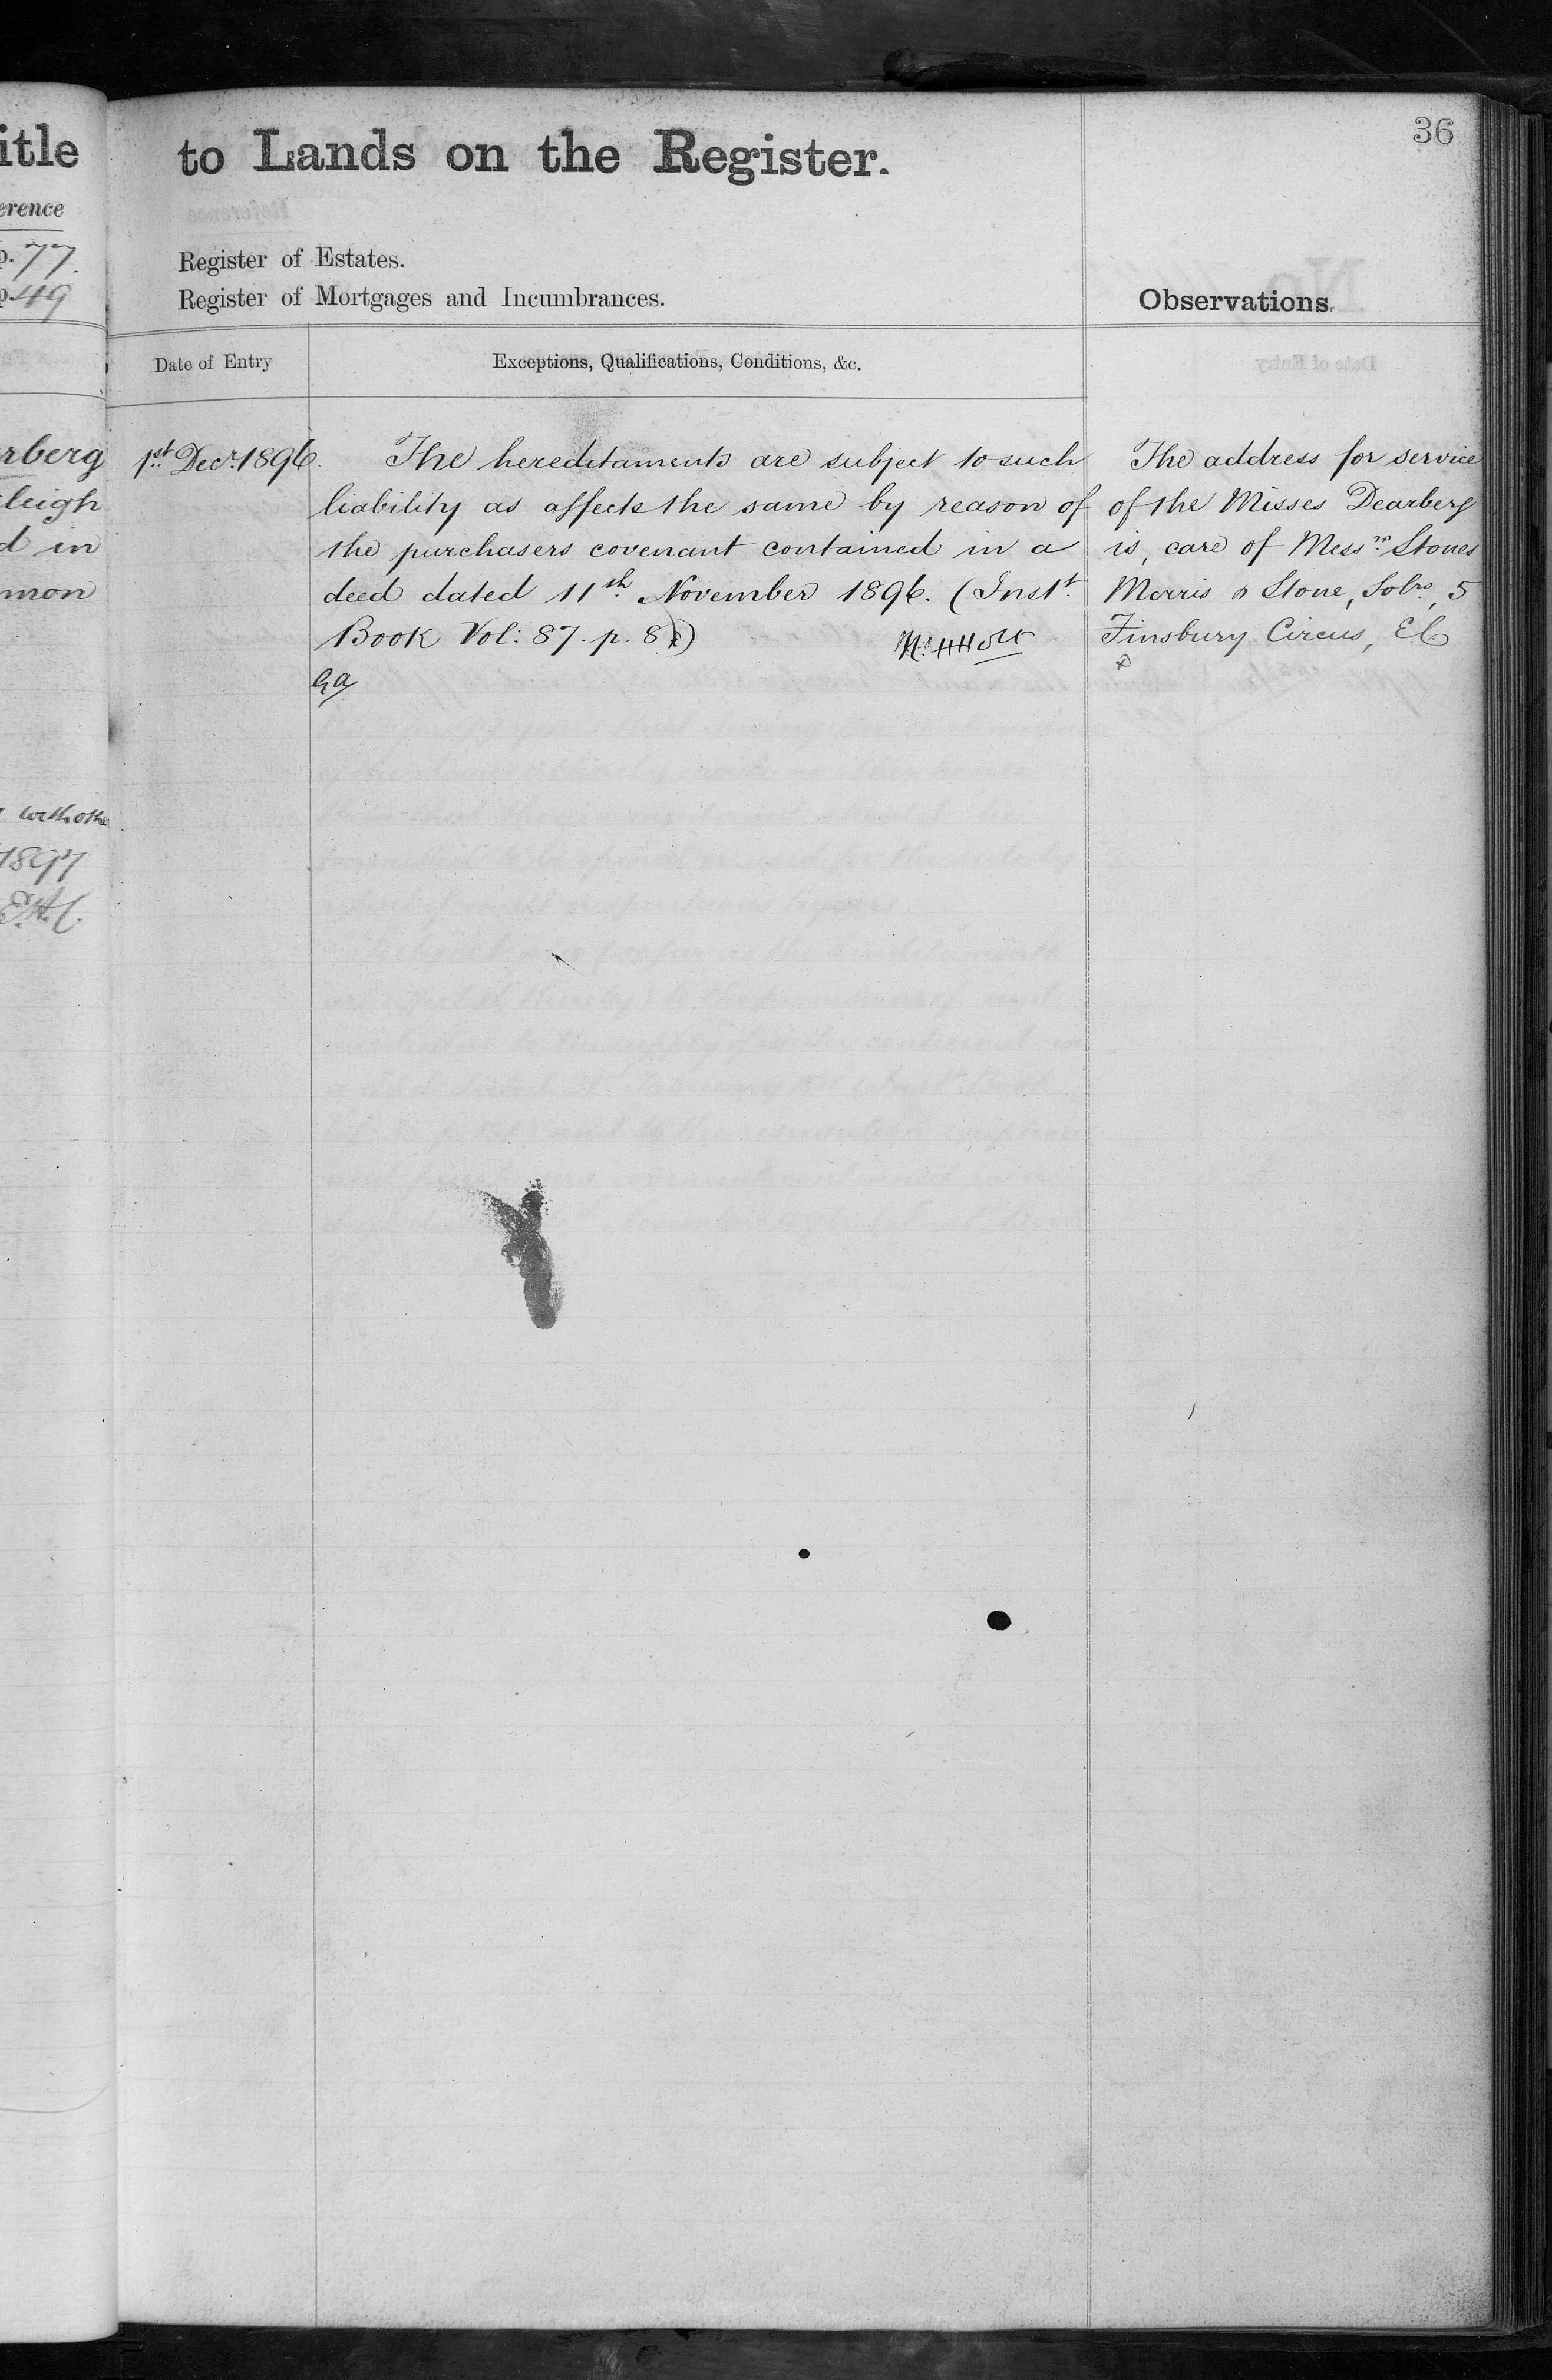 itle
erence
p. 77.
p. 49
rberg
leigh
d in
mon
1897
to Lands on the Register.
36
Register of Estates.
Register of Mortgages and Incumbrances.
Observations.
Date of Entry
Exceptions, Qualifications, Conditions, &c.
1st Decr. 1896.
The hereditaments are subject to such
liability as affects the same by reason of
the purchasers covenant contained in a
deed dated 11th November 1896. (Instt.
Book Vol: 87. p. 8
The address for service
of the Misses Dearberg
is, care of Messrs. Stones
Morris & Stone, Solrs, 5
Finsbury Circus, E C